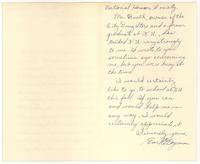 National Honor Society.
Mr. Buehl, owner of the
City Drug Store and a former
graduate of K.U., has
talked K.U. very strongly
to me. He wrote to you
sometime ago concerning
me, but you were busy at
the time.
I would certainly
like to go to school at K.U.
this fall. If you can
and would help me in
any way, I would
certainly appreciate it.
Sincerely yours,